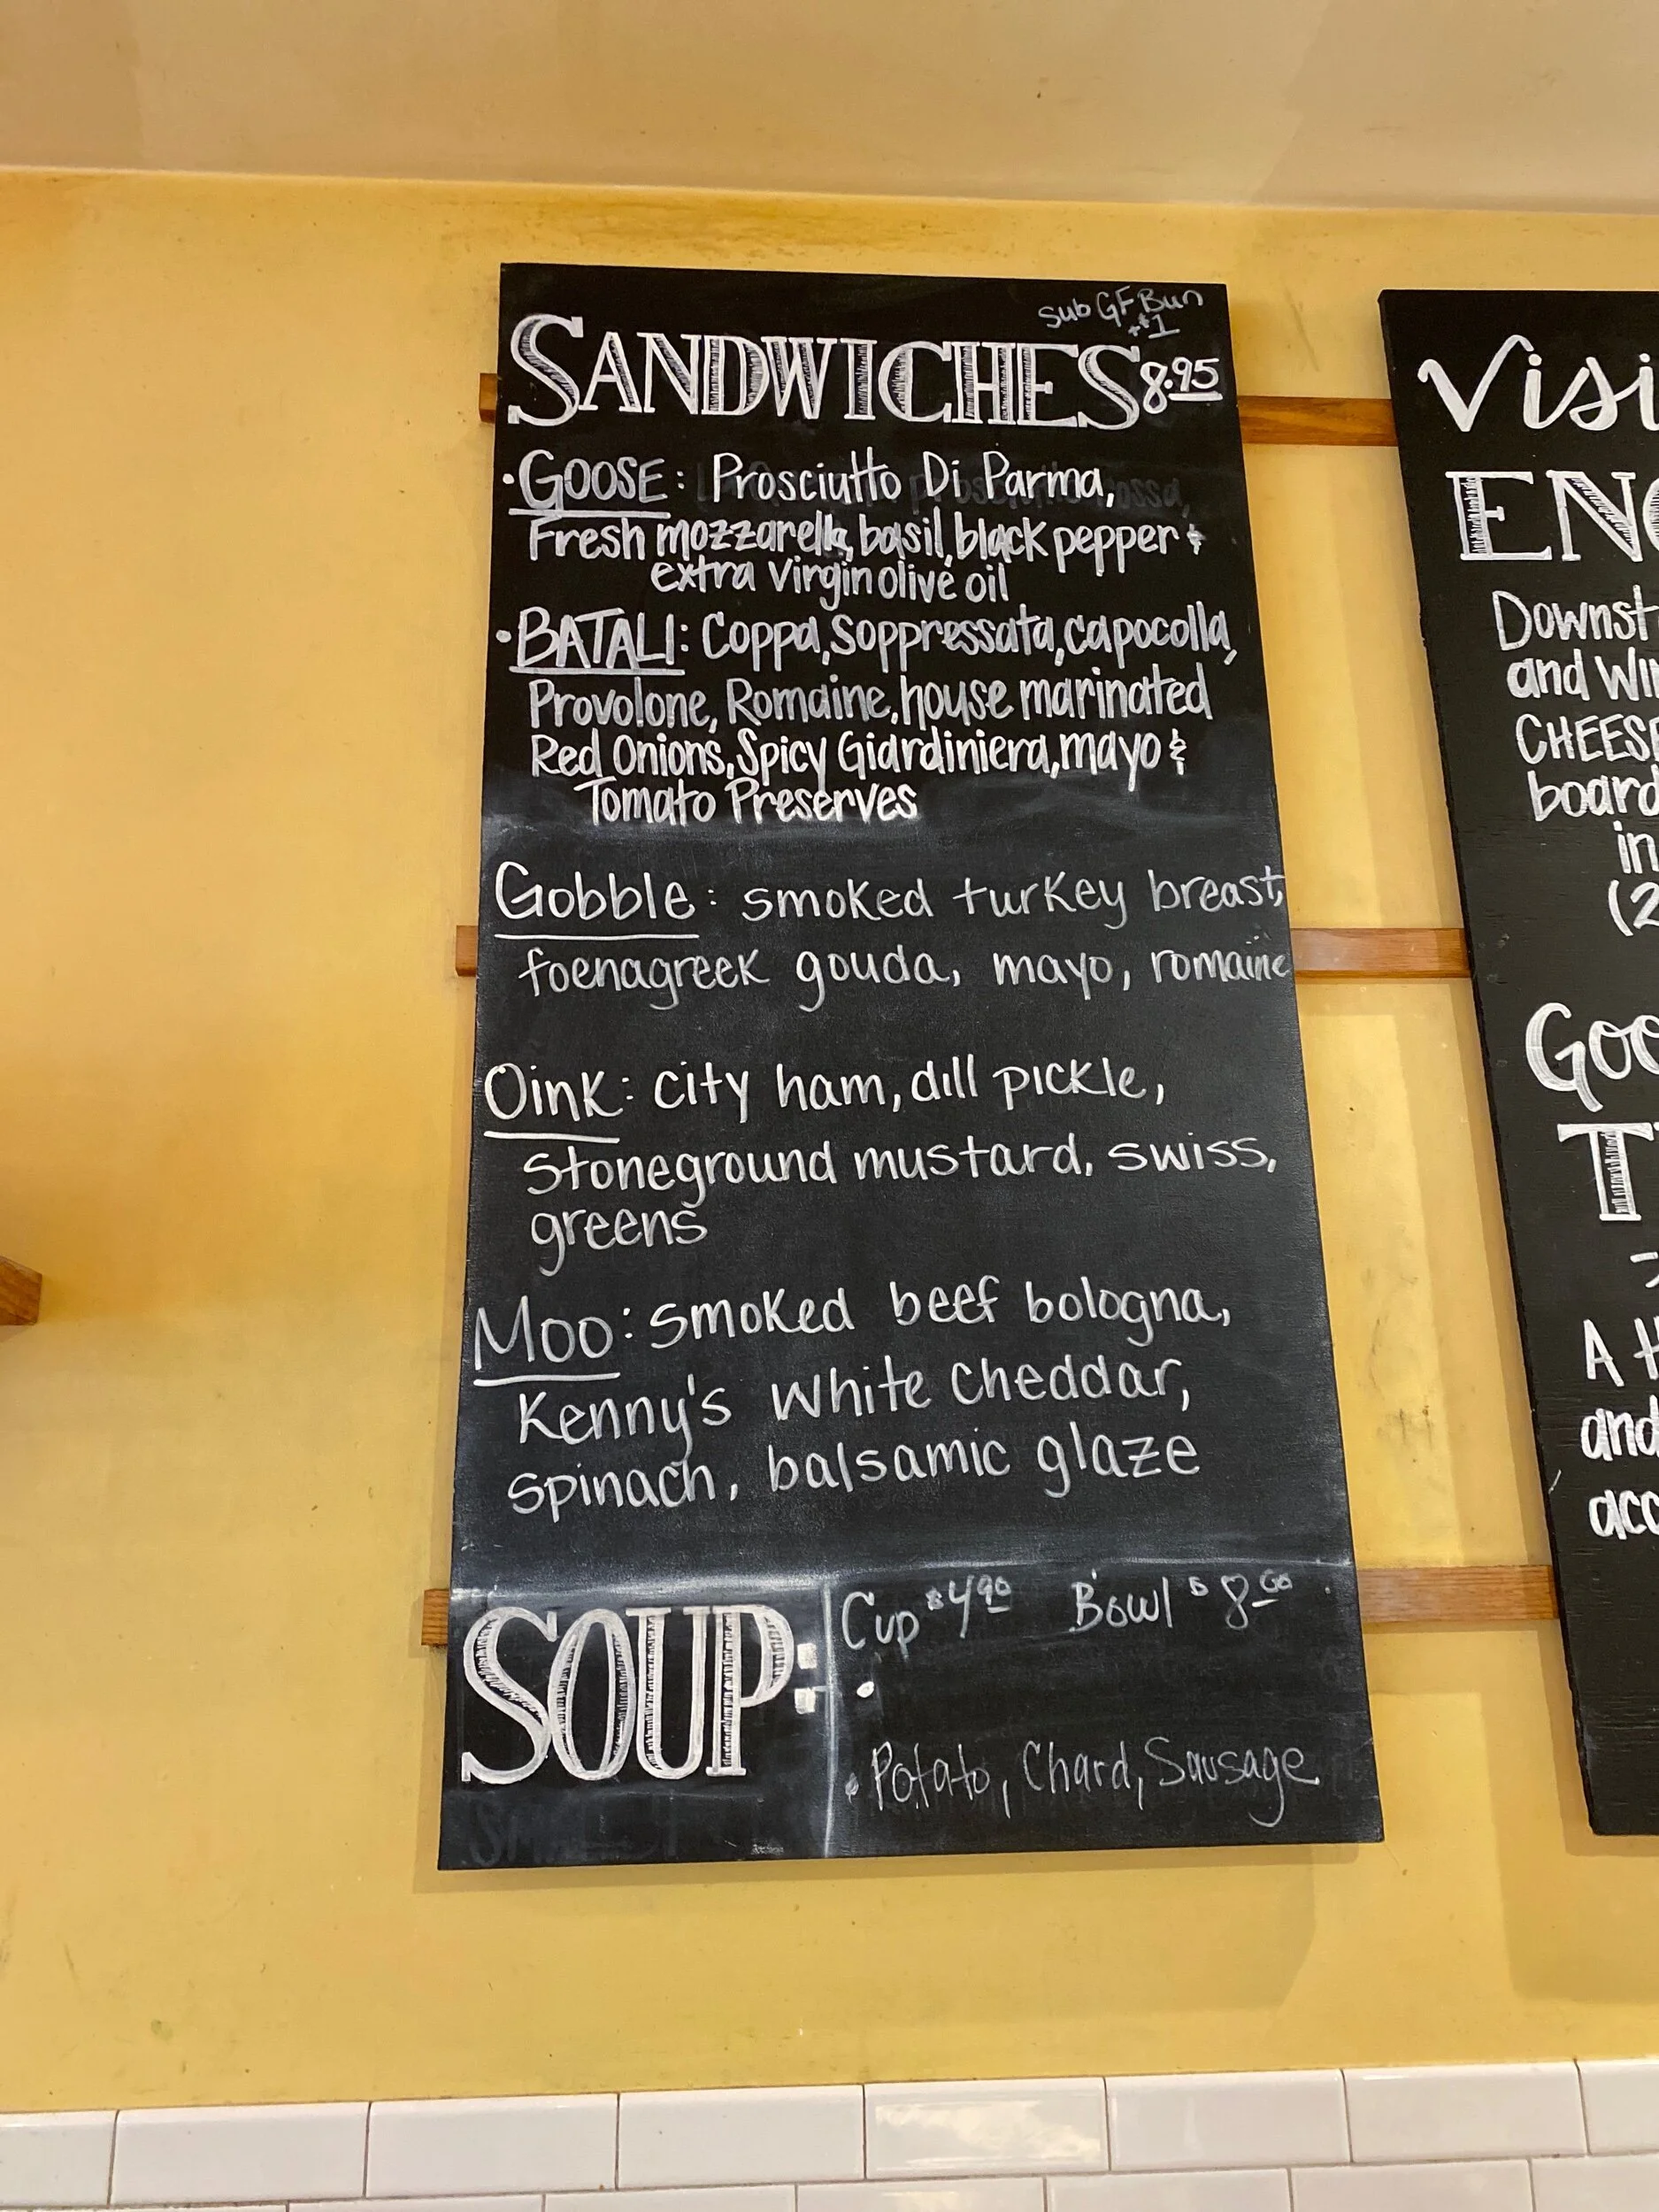 Sub GF Bun
+$1
SANDWICHES 8.95
• GOOSE: Prosciutto Di Parma,
Fresh mozzarella, basil, black pepper &
extra virgin olive oil
• BATALI: Coppa, Soppressata, capocolla,
Provolone, Romaine, house marinated
Red Onions, Spicy Giardiniera, mayo &
Tomato Preserves
Gobble: smoked turkey breast,
foenagreek gouda, mayo, romaine
Oink: city ham, dill pickle,
Stoneground mustard, swiss,
greens
Moo: smoked beef bologna,
Kenny's white cheddar,
spinach, balsamic glaze
SOUP:
Cup $4.90 Bowl $8.00
•
• Potato, Chard, Sausage
Visi
ENO
Downst
and Wi
CHEES
board
in
(2
Goo
T
A
and
acc